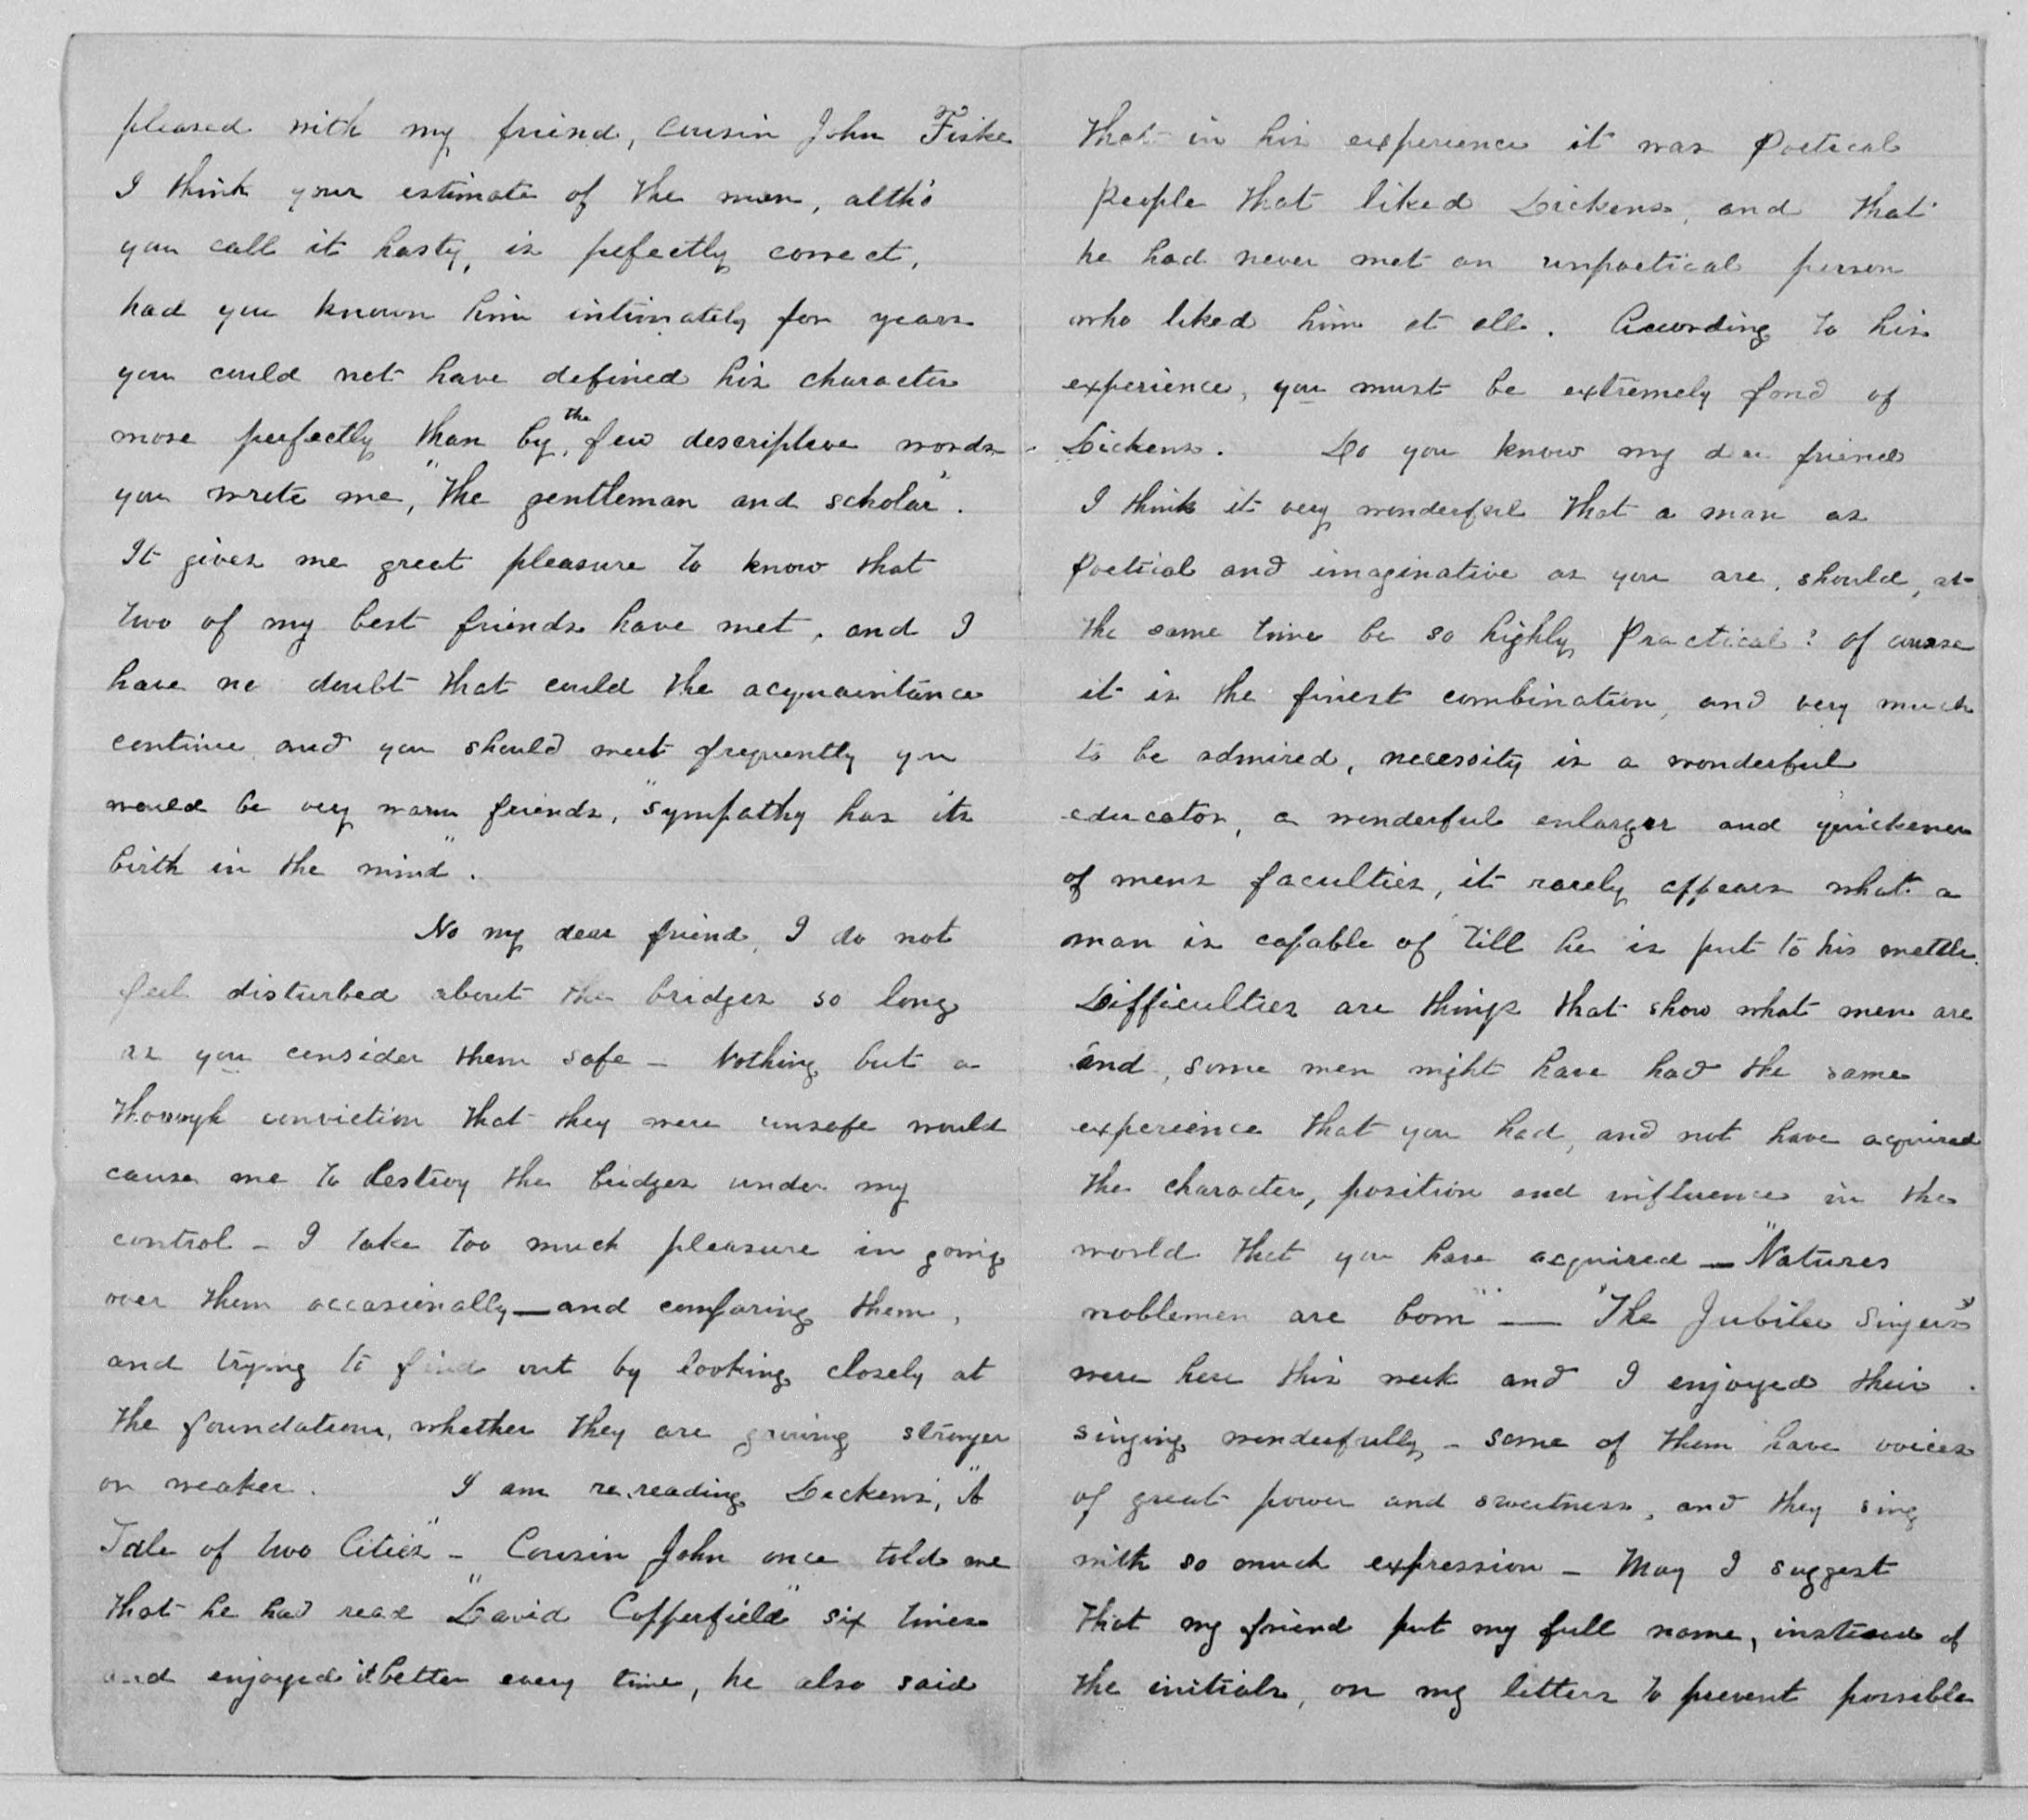 pleased with my friend, cousin John Fiske
I think your estimate of the man, altho'
you call it hasty, is pefectly correct,
had you known him intimately for years
you could not have defined his character
more perfectly than by, the few descriptive words
you wrote me, "the gentleman and scholar".
It gives me great pleasure to know that
two of my best friends have met, and I
have no doubt that could the acquaintance
continue and you should meet frequently you
would be very warm friends, "sympathy has its
birth in the mind".
No my dear friend, I do not
feel disturbed about the bridges so long
as you consider them safe - Nothing but a
thorough conviction that they were unsafe would
cause me to destroy the bridges under my
control - I take too much pleasure in going
over them occasionally — and comparing them,
and trying to find out by looking closely at
the foundations, whether they are growing stronger
or weaker. I am re.reading Dickens, "A
Tale of two Cities" - Cousin John once told me
that he had read "David Copperfield" six times
and enjoyed it better every time, he also said
that in his experience it was poetical
people that liked Dickens, and that
he had never met an unpoetical person
who liked him at all. According to his
experience, you must be extremely fond of
Dickens. Do you know my dear friend
I think it very wonderful that a man as
poetical and imaginative as you are, should, at
the same time be so highly practical? of course
it is the finest combination, and very much
to be admired, necessity is a wonderful
educator, a wonderful enlarger and quickener
of mens faculties, it rarely appears what a
man is capable of till he is put to his mettle.
Difficulties are things that show what men are
and, some men might have had the same
experience that you had, and not have acquired
the character, position and influence in the
world that you have acquired — "Natures
noblemen are born" — "The Jubilee Singers"
were here this week and I enjoyed their
singing wonderfully - some of them have voices
of great power and sweetness, and they sing
with so much expression - May I suggest
that my friend put my full name, instead of
the initials, on my letters to prevent possible